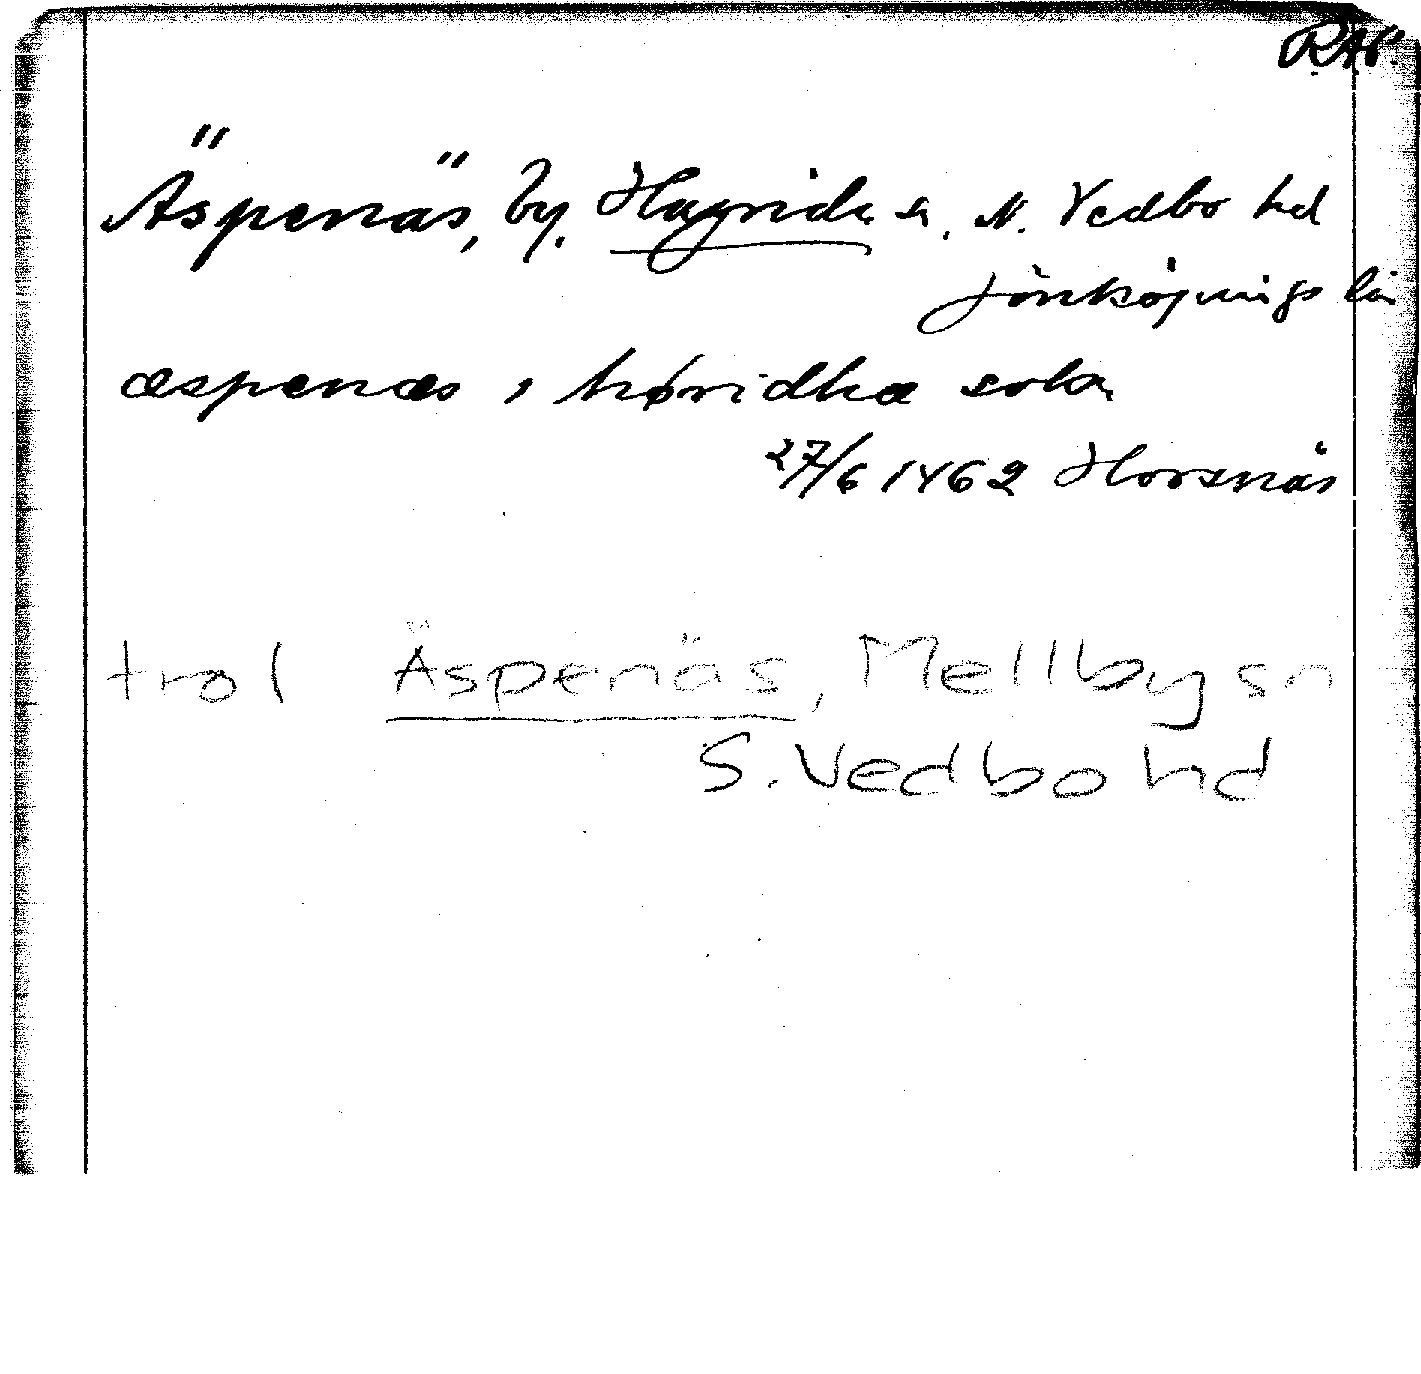 RAP.
Äspenäs, by. Hagrida sn. N. Vedbo hd
Jönköpings län
æspenæs i høridhæ sokn
27/6 1462 Horsnäs
trol Äspenäs, Mellby sn
S. Vedbo hd